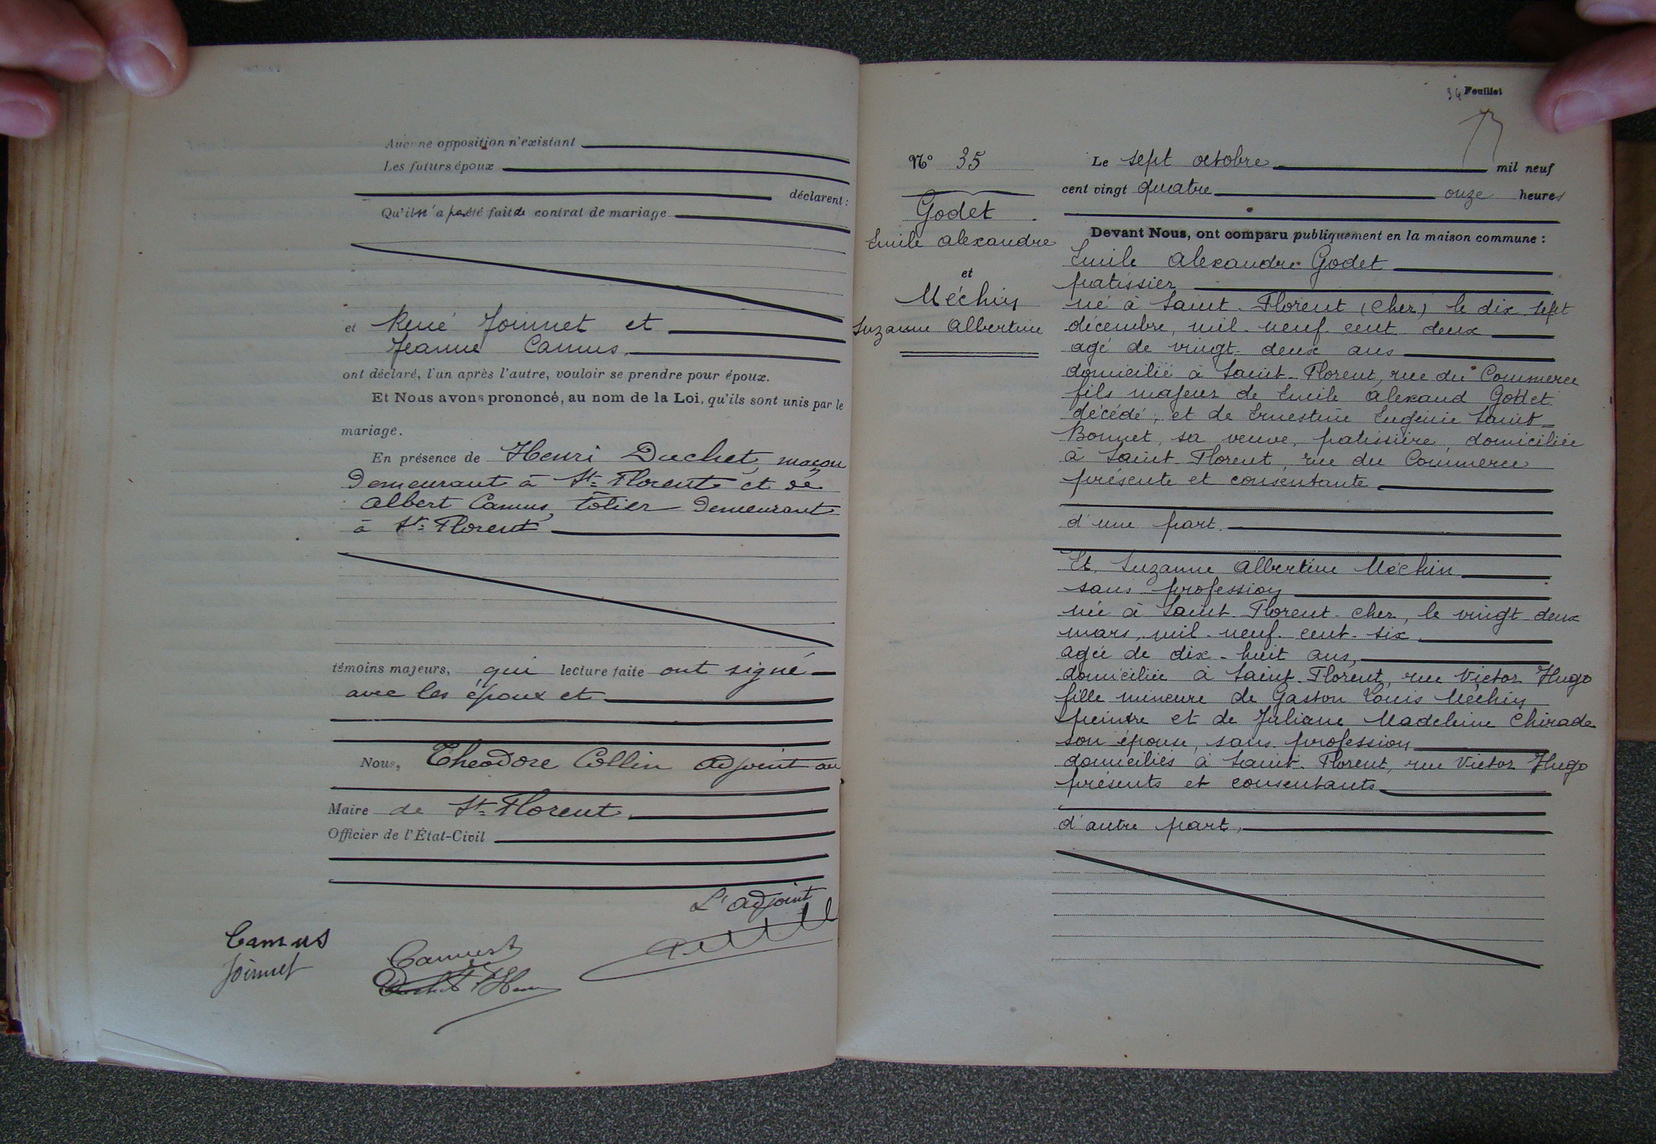 Aucune opposition n'existant
Les futurs époux
déclarent :
Qu'il n'a pas été fait de contrat de mariage
et René Joinnet et
Jeanne Camus
ont déclaré, l'un après l'autre, vouloir se prendre pour époux.
Et Nous avons prononcé, au nom de la Loi, qu'ils sont unis par le
mariage.
En présence de Henri Duchet, maçon
demeurant à St-Florent et de
Albert Camus, tôlier demeurant
à St-Florent
témoins majeurs, qui lecture faite ont signé
avec les époux et
Nous, Théodore Collin adjoint au
Maire de St-Florent
Officier de l'État-Civil
L'adjoint
Camus
Joinnet
34 Feuillet
N° 35
Godet
Emile Alexandre
et
Méchin
Suzanne Albertine
Le sept octobre mil neuf
cent vingt quatre onze heures
Devant Nous, ont comparu publiquement en la maison commune :
Emile Alexandre Godet
patissier
né à Saint-Florent (Cher) le dix sept
décembre, mil neuf cent deux
agé de vingt-deux ans
domicilié à Saint-Florent, rue du Commerce
fils majeur de Emile Alexand Godet
décédé, et de Ernestine Eugénie Saint-
Bonnet, sa veuve, patissière, domiciliée
à Saint-Florent, rue du Commerce
présente et consentante
d'une part.
Et, Suzanne Albertine Méchin
sans profession
née à Saint-Florent-Cher, le vingt deux
mars, mil-neuf-cent-six
agée de dix-huit ans,
domiciliée à Saint-Florent, rue Victor Hugo
fille mineure de Gaston Louis Méchin
peintre et de Juliane Madeleine Chirade
son épouse, sans profession
domiciliés à Saint-Florent, rue Victor Hugo
présents et consentants
d'autre part,